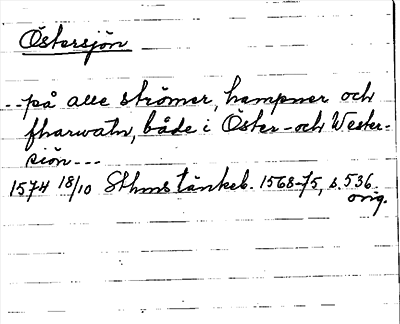 Östersjön
-- på alle strömer, hampner och
fharwatn, både i Öster- och Wester-
siön ---
1574 18/10 Sthms tänkeb. 1568-75, s. 536.
orig.